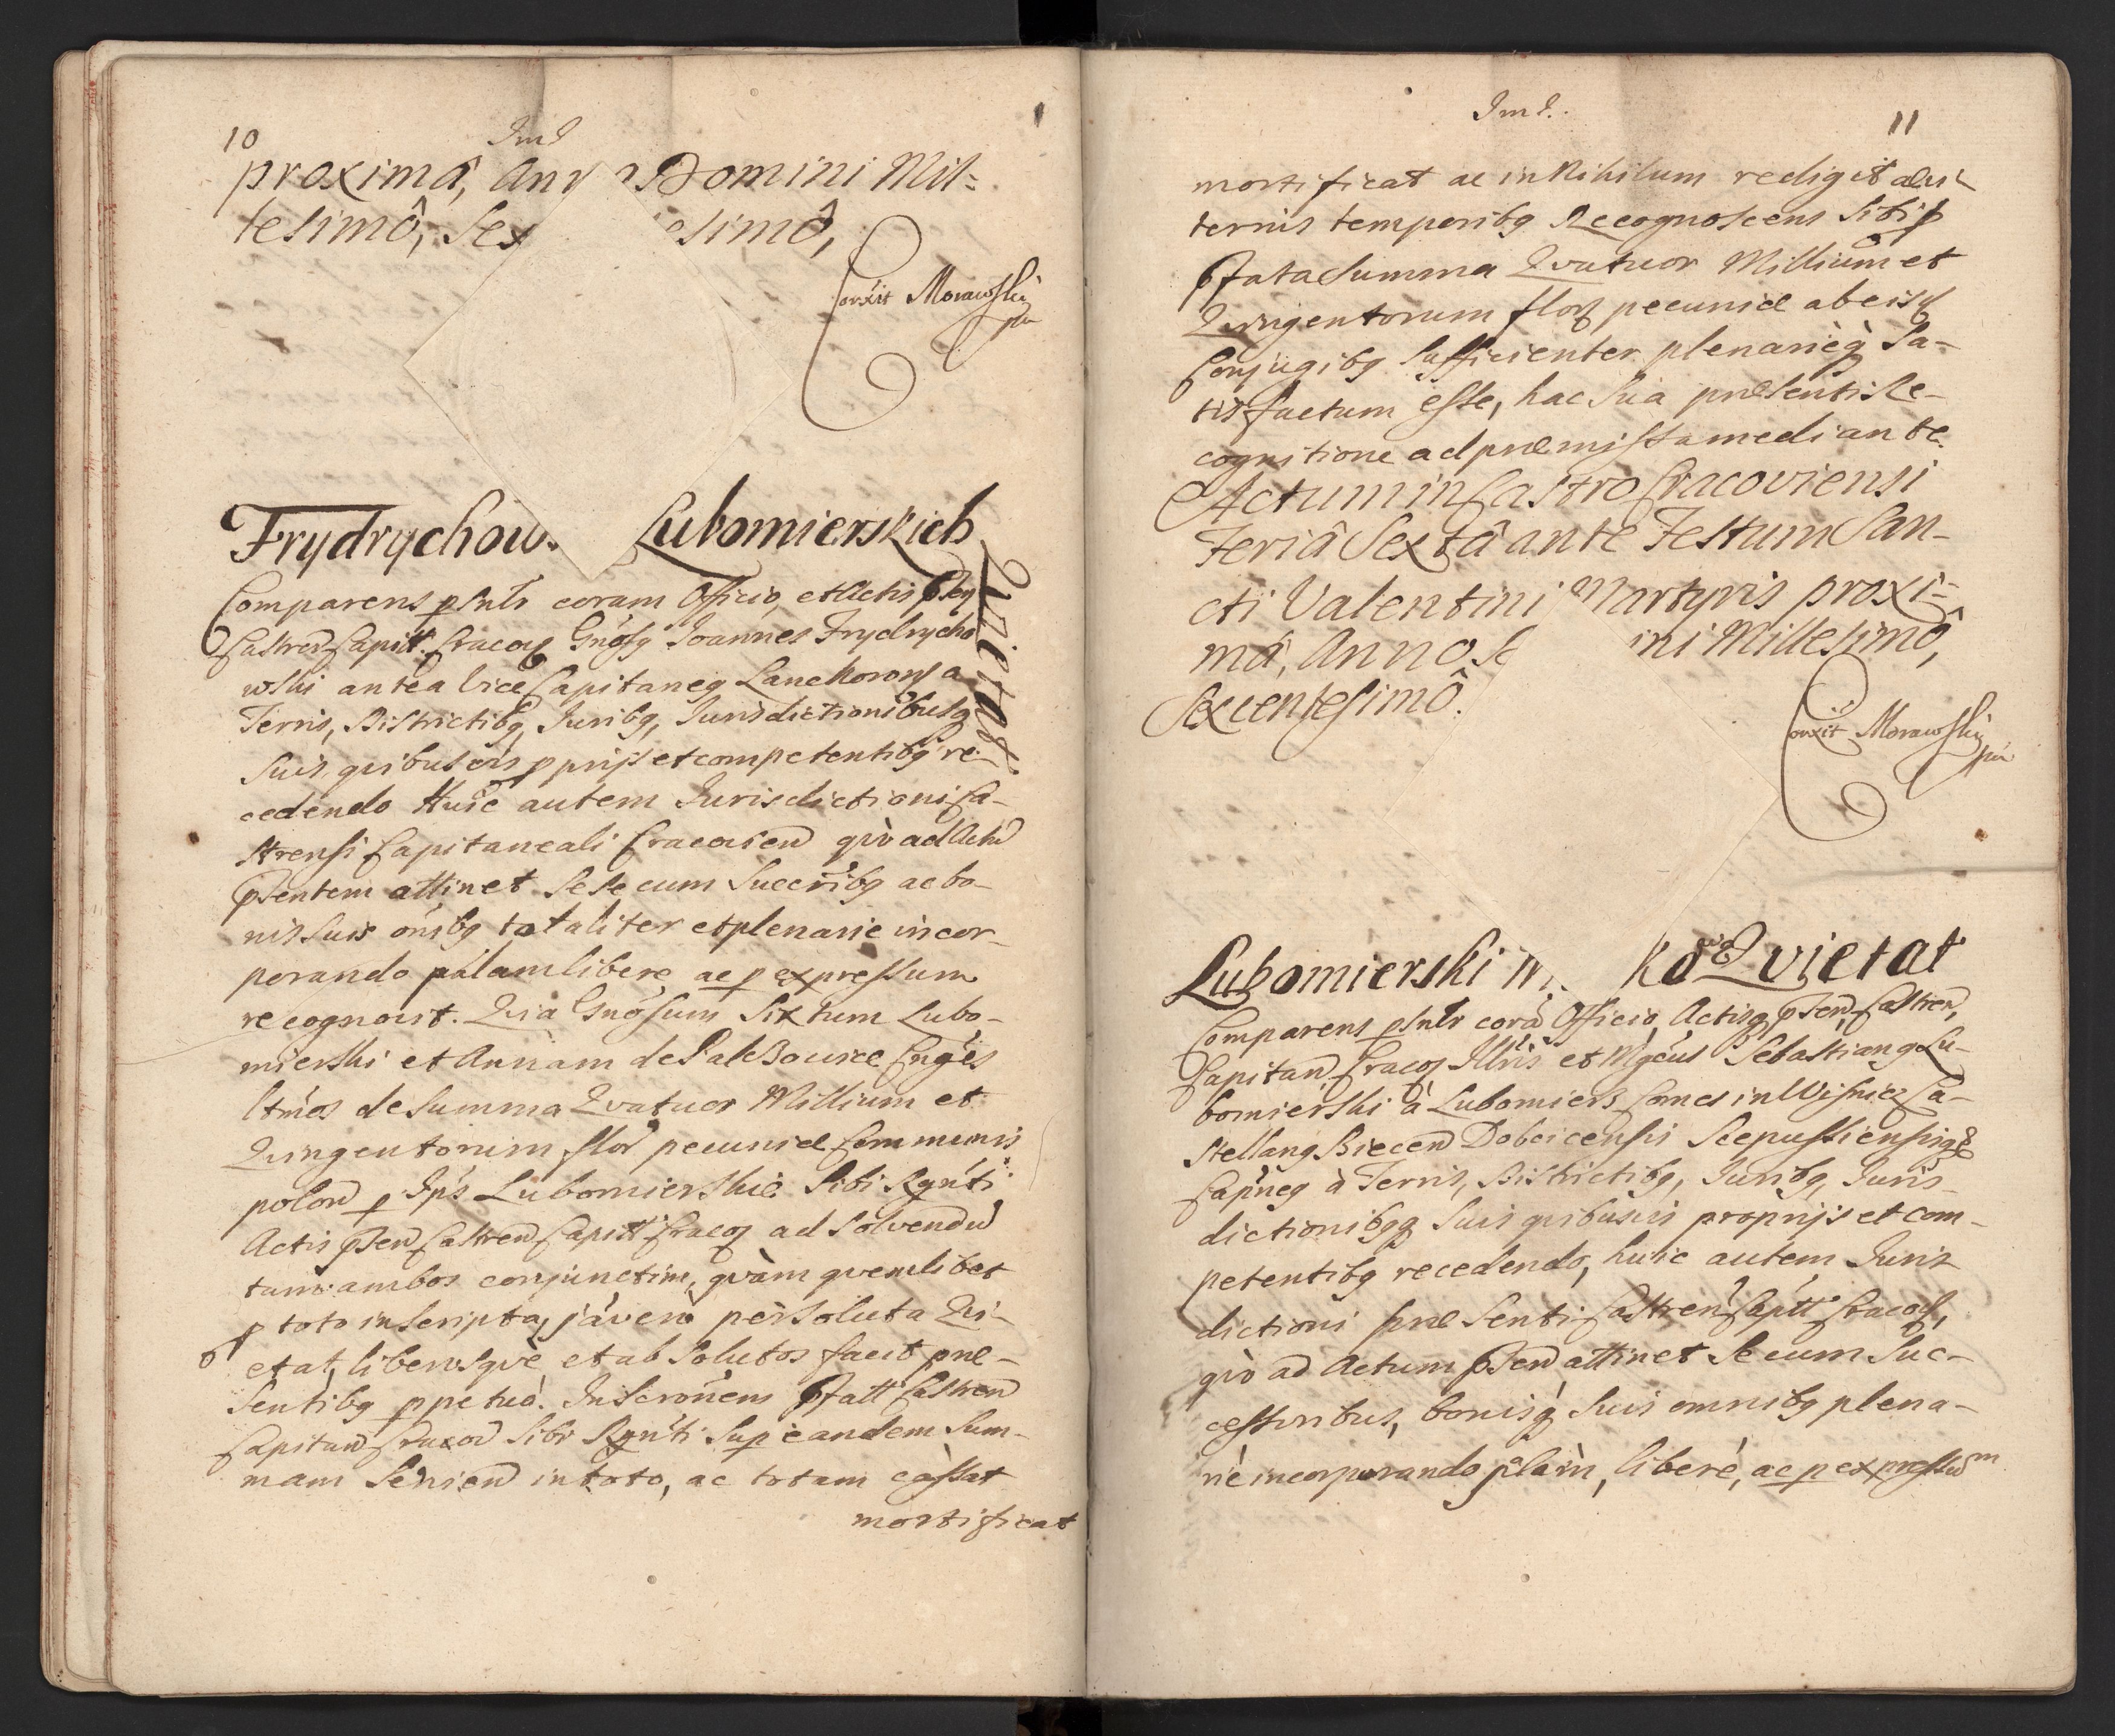 10
proximâ, Ann Domini Mil=
lesimô, Sex esimô,
Correxit Morawsky
Frydrychows Lubomierskich
Quietat
Comparens psntr coram Officio, et Actis pntibg
Castren Capit. Cracov Gnosg Joannes Frydrycho
wski antea Vice Capitaneg Lanckorons a
Terris, Districtibg, Juribg, Jurisdictionibusq
Suis, quibusvis pprijs et competentibg re-
cedendo Huic autem Jurisdictioni Ca-
strensi Capitaneali Cracovien qvò ad Actu
psentem attinet Se se cum Succribg ac bo-
nis Suis oibg totaliter et plenarie incor-
porando palam libere ac p expressum
recognovit. Qvia Gnosum Sixtum Lubo-
mierski et Annam de
de Summa Qvatuor Millium et
Qvingentorum flor pecuniæ Communis
polon p Ips Lubomierskie Sibi Rgnti
Actis psen Castren Capit Cracov ad Solvendu
tam ambos conjunctim, qvàm qvemlibet
p toto inscripta, jàvero persoluta Qvi-
etat, liberosqve et absolutos facit præ-
Sentibg ppetuò. Inscronem pfatt Castren
Capitan Cracov Sibi Rgnti Sup eandem Sum-
mam Servien in toto, ac totam càssat
mortificat
11
mortificat ac in Nihilum redigit ævi
ternis temporibg Recognoscens Sibi p
pfata Summa Qvatuor Millium et
Qvingentorum flor pecuniæ ab eisd
Conjugibg Sufficienter plenarieq Sa-
tisfactum esse, hac Sua præsenti Re-
cognitione ad præmissa mediante.
Actum in Castro Cracoviensi
Feriâ Sextâ ante Festum San-
cti Valentini Martyris proxi=
mâ, Anno ini Millesimô,
Sexcentesimô.
Correxit Morawsky
Lubomierski Kowa Qvietat
Comparens pSntr corà Officio, Actisq psen, Castren,
Capitan, Cracov Illris et Mgcus Sebastiang Lu-
bomierski à Lubomiers Comes in Wisnicz Ca-
stellang Biecen Dobcicensis Scepussiensiqe
Capneg à Terris, Districtibg, Juribg, Juris
dictionibgq Suis quibusvis proprijs et com-
petentibg recedendo, huic autem Juris
dictioni præSenti Castren Captt Cracov,
qvò ad Actum psen attinet Se cum Suc-
cessoribus, bonisq Suis omnibg plena-
riè incorporando pálàm, liberè, ac p expressum